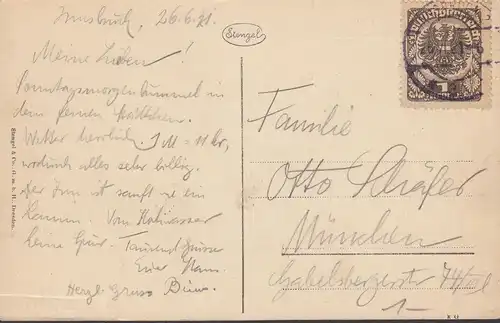 Innsbruck, 26.6.21.
Meine Lieben!
Sonntagsmorgenbummel in
dem feinen Städtchen.
Wetter herrlich 1 M = 11 Kr,
wodurch alles sehr billig.
Der Inn ist sanft wie ein
Lamm. Von Hochwasser
keine Spur. Tausend Grüsse
Euer Hans.
Herzl. Gruss
Stengel
Stengel & Co., G. m. b. H., Dresden.
Deutschösterreich
1
Familie
Otto Schäfer
München
Gabelsbergerstr 74/
K 44